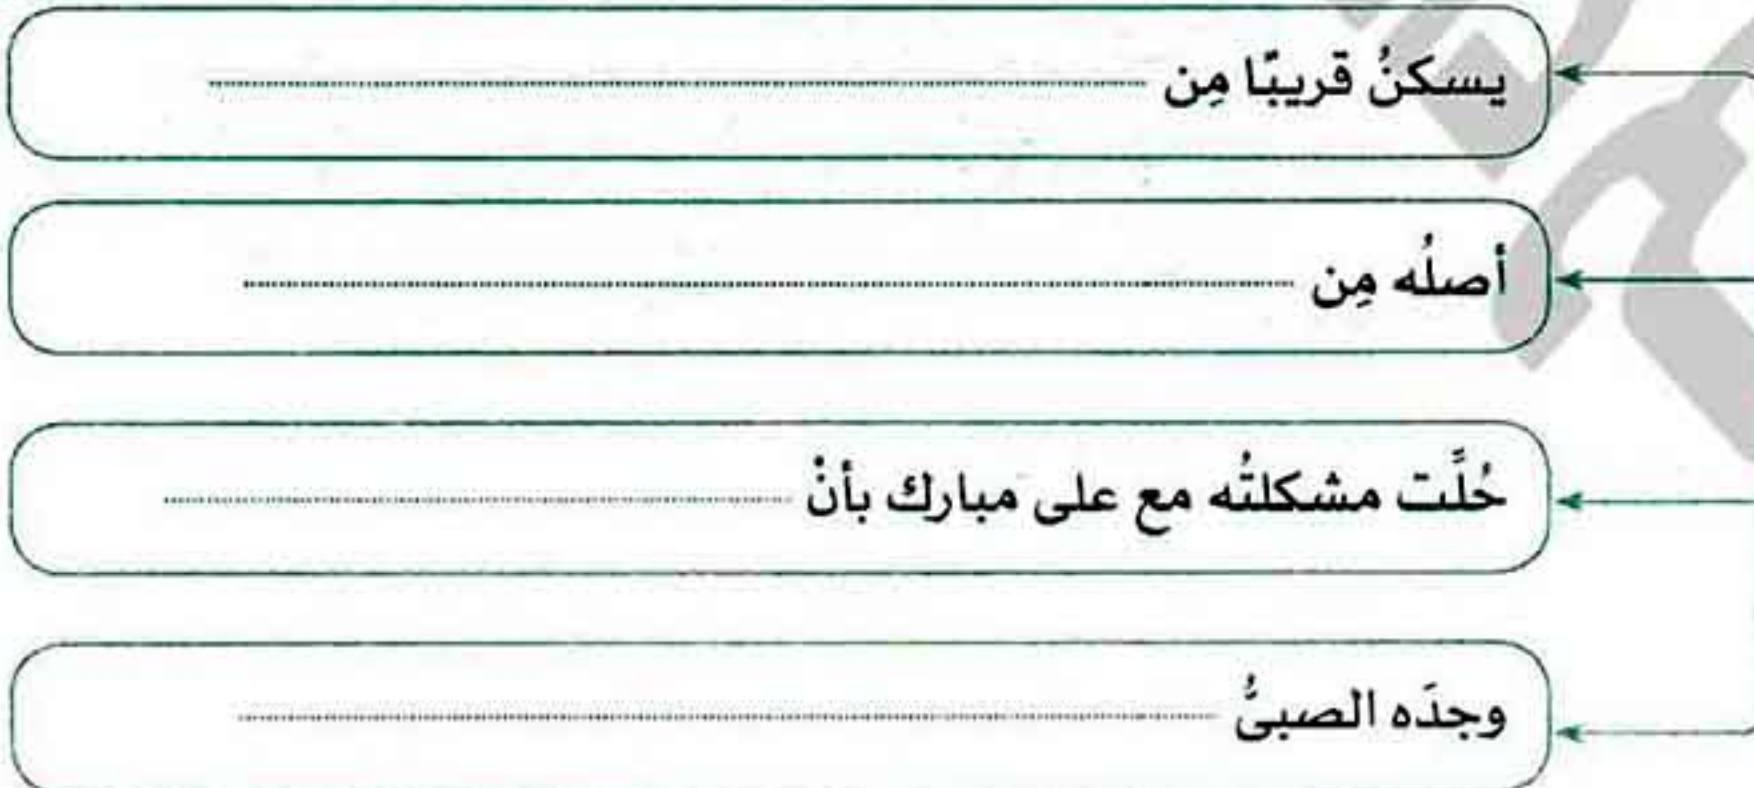 يسكنُ قريبًا مِن
أصلُه مِن
حُلَّت مشكلتُه مع على مبارك بأنْ
وجدَه الصبىُّ